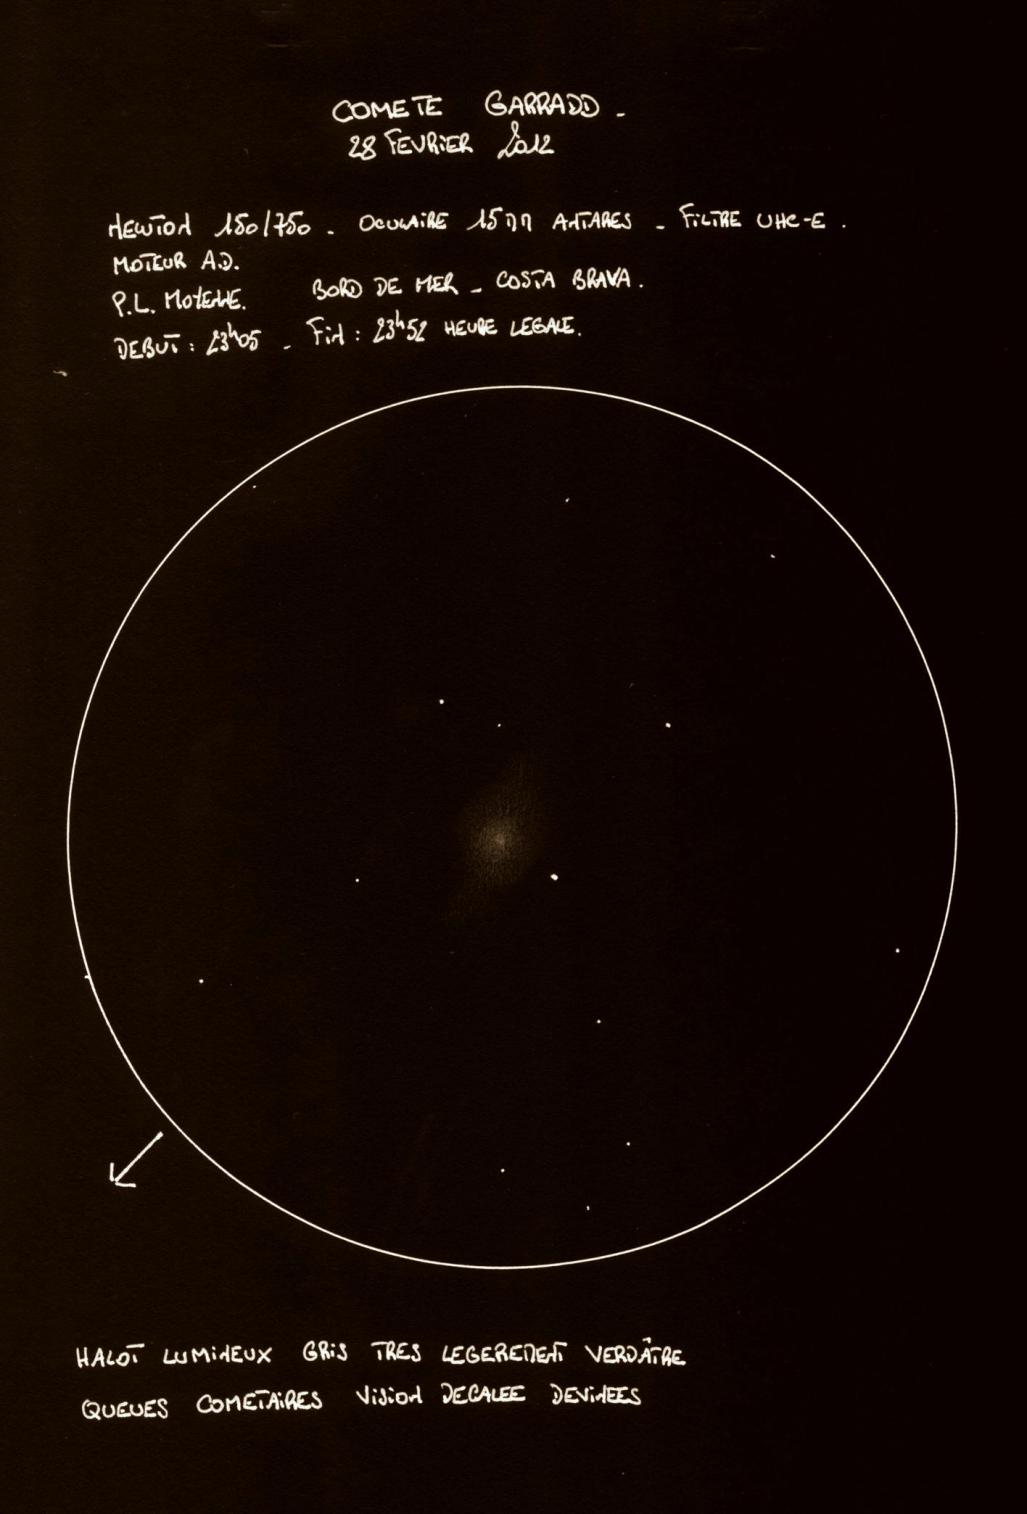 COMETE GARRADD -
28 FEVRIER 2012
NEWTON 150/750 - OCULAIRE 15MM ANTARES - FILTRE UHC-E.
MOTEUR A.D.
P.L. MOYENNE. BORD DE MER - COSTA BRAVA.
DEBUT : 23h05 - FIN : 23h52 HEURE LEGALE.
HALOT LUMINEUX GRIS TRES LEGEREMENT VERDÂTRE
QUEUES COMETAIRES VISION DECALEE DEVINEES